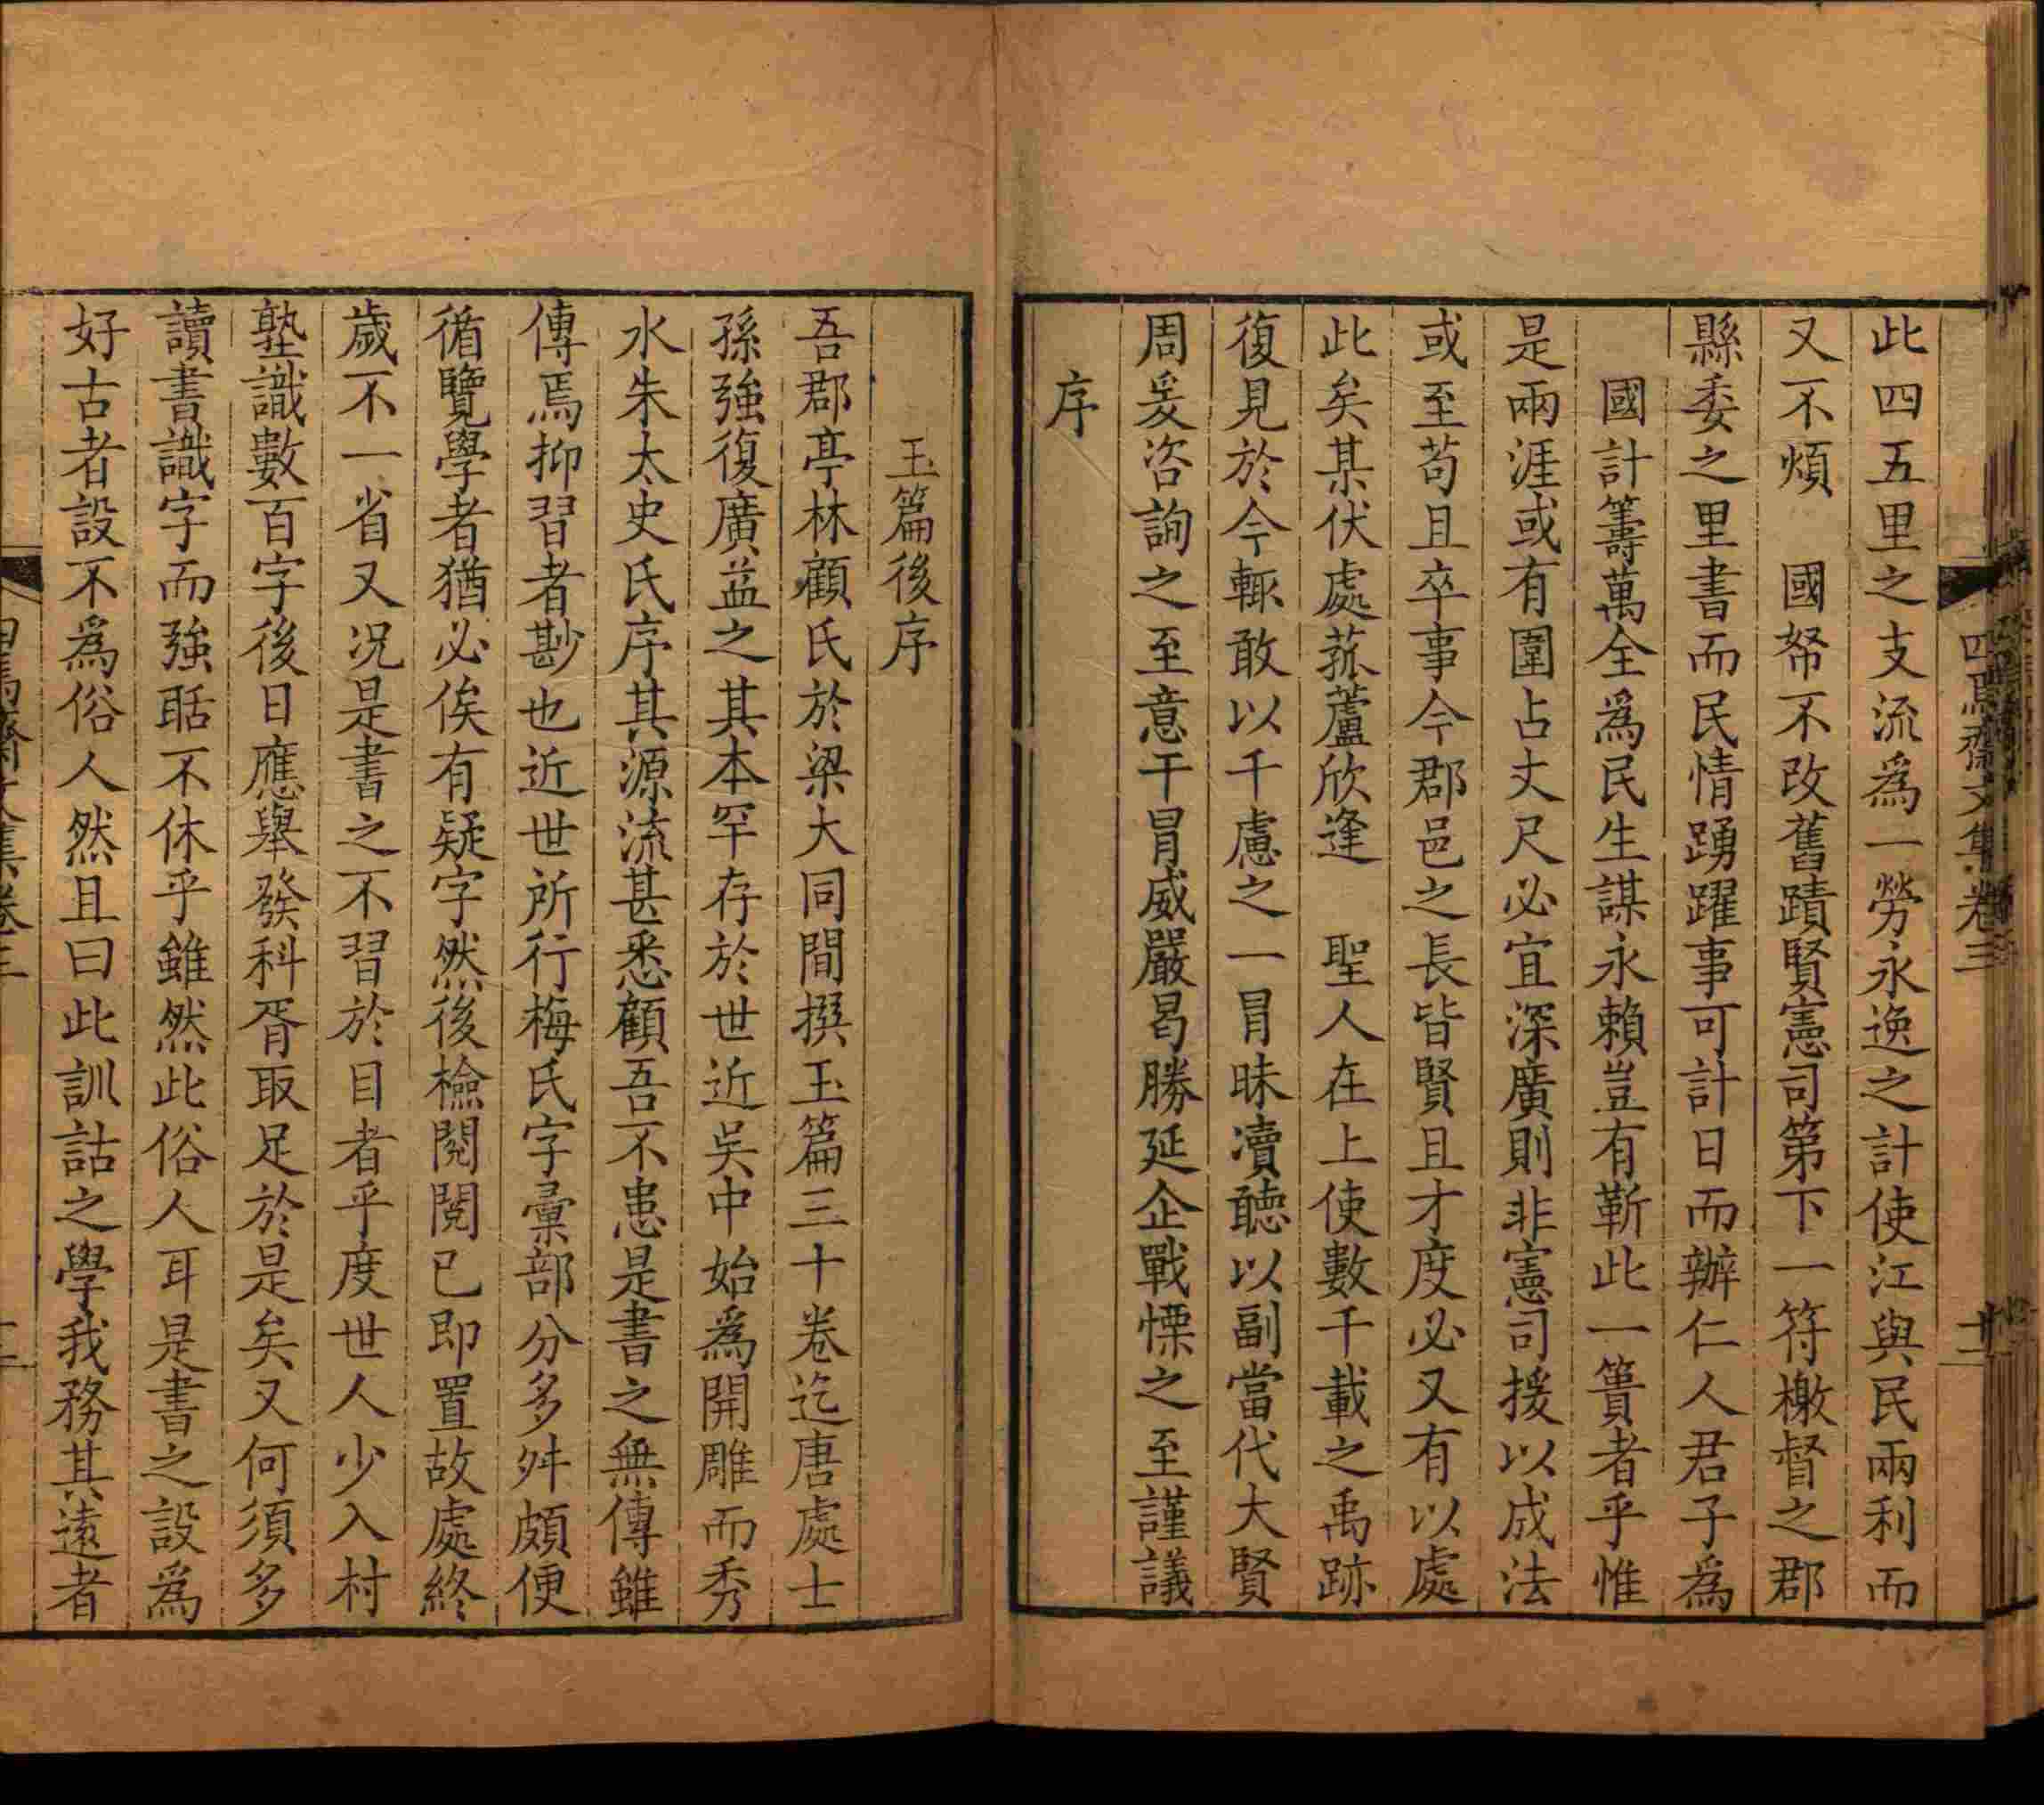 四焉齋文集卷三
十一
此四五里之支流為一勞永逸之計使江與民兩利而
又不煩　國帑不改舊蹟賢憲司第下一符檄督之郡
縣委之里書而民情踴躍事可計日而辦仁人君子為
國計籌萬全為民生謀永賴豈有靳此一簣者乎惟
是兩涯或有圍占丈尺必宜深廣則非憲司援以成法
或至苟且卒事今郡邑之長皆賢且才度必又有以處
此矣某伏處菰蘆欣逢　聖人在上使數千載之禹跡
復見於今輒敢以千慮之一冒昧瀆聽以副當代大賢
周爰咨詢之至意干冒威嚴曷勝延企戰慄之至謹議
序
玉篇後序
吾郡亭林顧氏於梁大同間撰玉篇三十卷迄唐處士
孫強復廣益之其本罕存於世近吳中始為開雕而秀
水朱太史氏序其源流甚悉顧吾不患是書之無傳雖
傳焉抑習者尠也近世所行梅氏字彙部分多舛頗便
循覽學者猶必俟有疑字然後檢閱閱已即置故處終
歲不一省又況是書之不習於目者乎度世人少入村
塾識數百字後日應舉發科胥取足於是矣又何須多
讀書識字而強聒不休乎雖然此俗人耳是書之設為
好古者設不為俗人然且曰此訓詁之學我務其遠者